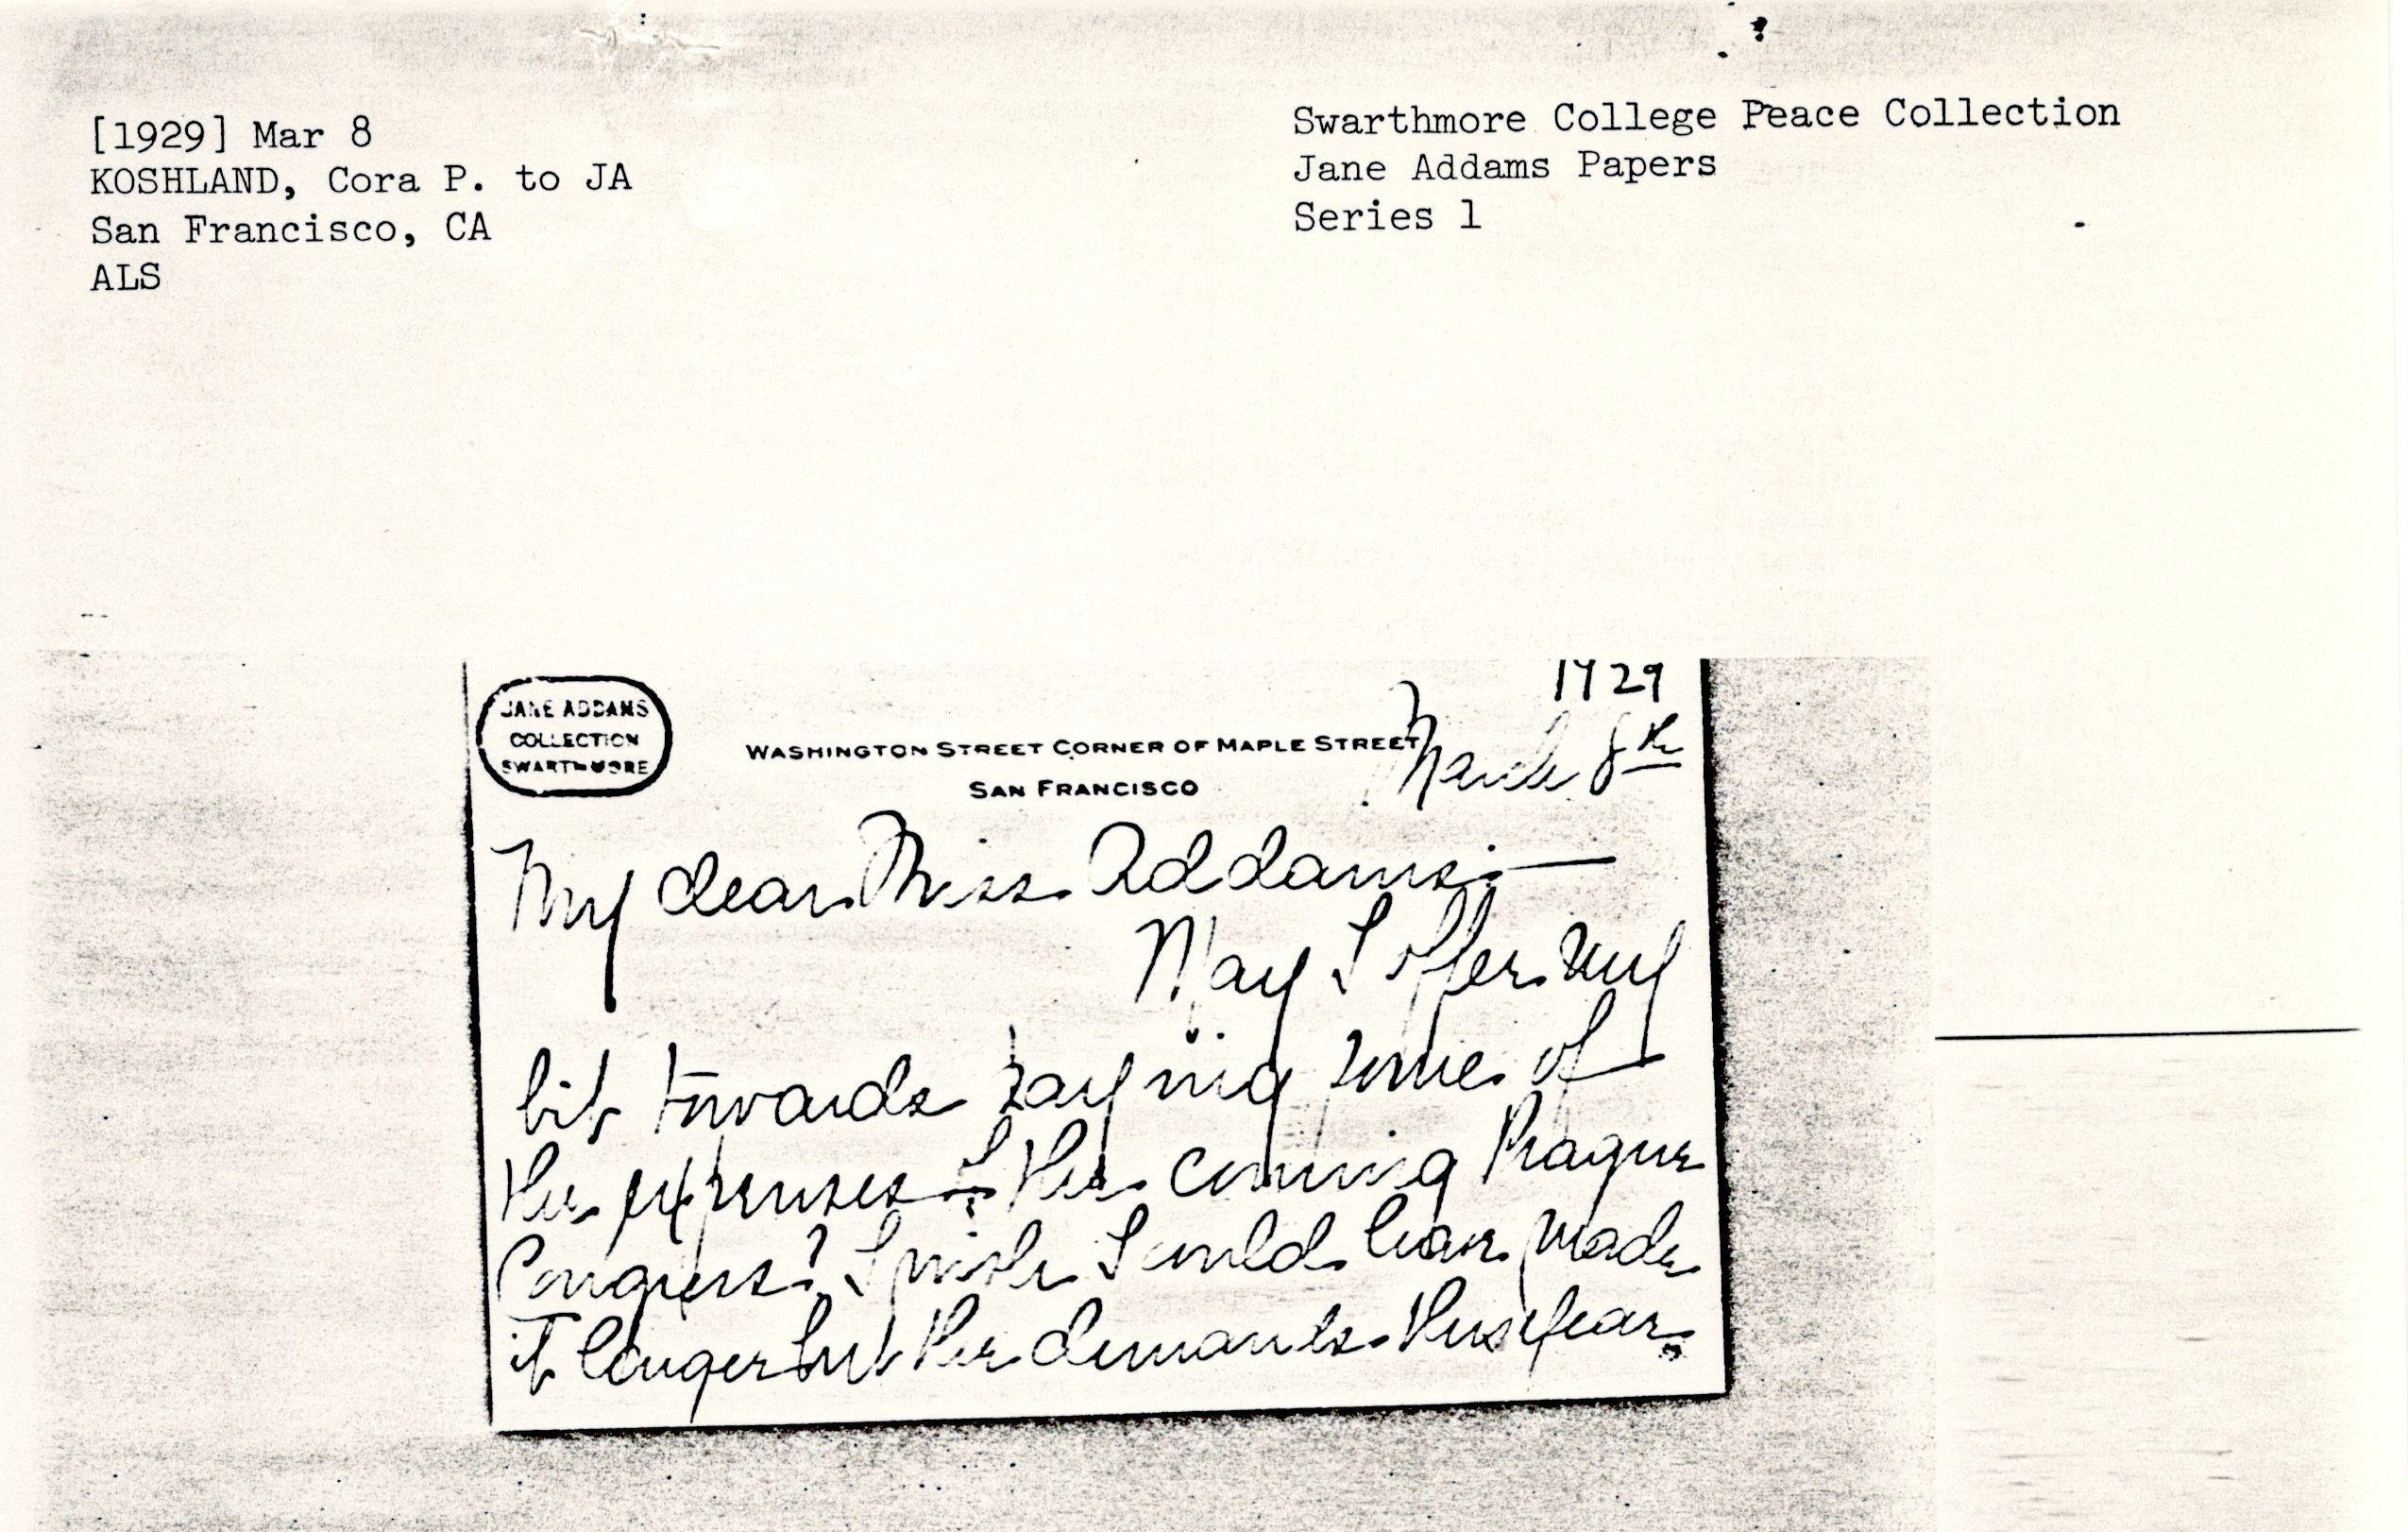 [1929] Mar 8
KOSHLAND, Cora P. to JA
San Francisco, CA
ALS
Swarthmore College Peace Collection
Jane Addams Papers
Series 1
JANE ADDAMS
COLLECTION
SWARTHMORE
1929
WASHINGTON STREET CORNER OF MAPLE STREET
SAN FRANCISCO
March 8th
My dear Miss Addams:—
May I offer my
bit towards paying some of
the expenses of the coming Prague
Congress? I wish I could have made
it larger but the demands this year